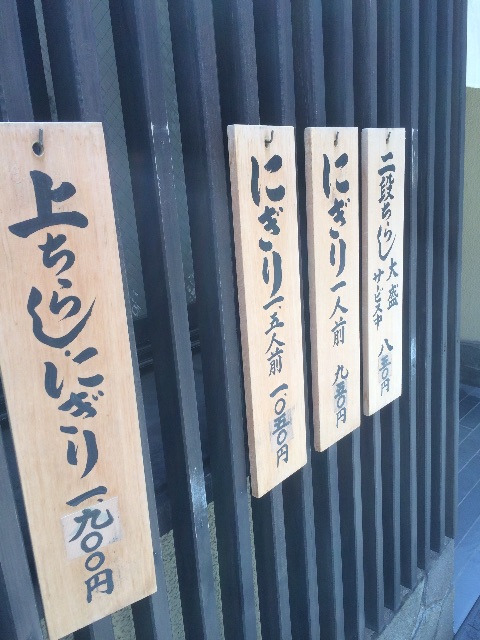 二段ちらし大盛サービス中 八五〇円
にぎり一人前 九五〇円
にぎり一.五人前 一.〇五〇円
上ちらし.にぎり 一.九〇〇円